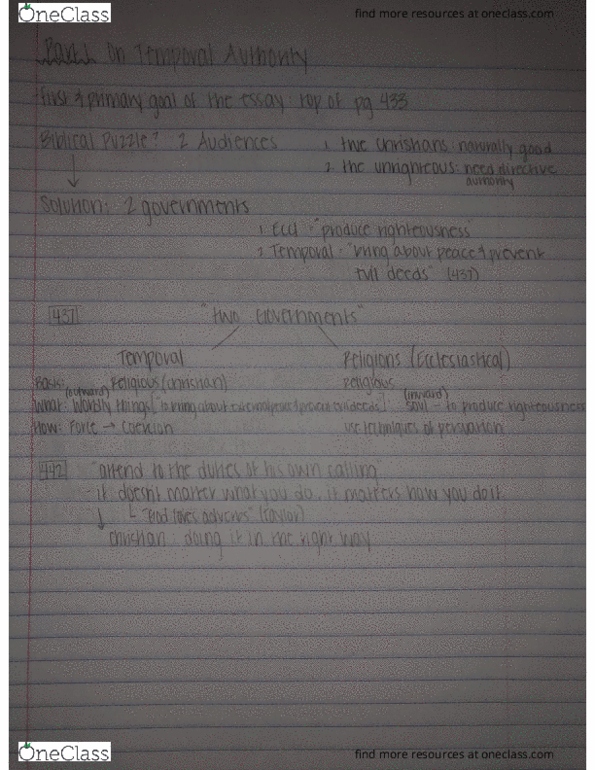 OneClass
find more resources at oneclass.com
Part 1 On Temporal Authority
first & primary goal of the essay: top of pg 433
Biblical Puzzle? 2 Audiences 1. true christians: naturally good
2. the unrighteous: need directive
authority
Solution: 2 governments
1. Eccl - "produce righteousness"
2. Temporal - "bring about peace & prevent
evil deeds" (437)
437 "two Governments"
Temporal Religious (Ecclesiastical)
Basis: Religious (christian) religious
(outward) (inward)
What: Worldly things ["to bring about external peace & prevent evil deeds"] soul - to produce righteousness
How: Force → Coercion use techniques of persuasion
442 "attend to the duties of his own calling"
- it doesn't matter what you do, it matters how you do it
"God loves adverbs"
christian: doing it in the right way
OneClass
find more resources at oneclass.com